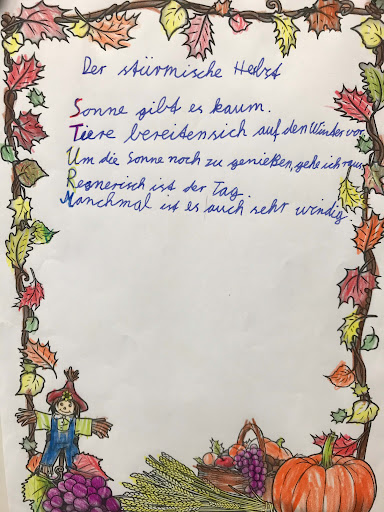 Der stürmische Herbst
Sonne gibt es kaum.
Tiere bereiten sich auf den Winter vor.
Um die Sonne noch zu genießen, gehe ich raus.
Regnerisch ist der Tag.
Manchmal ist es auch sehr windig.